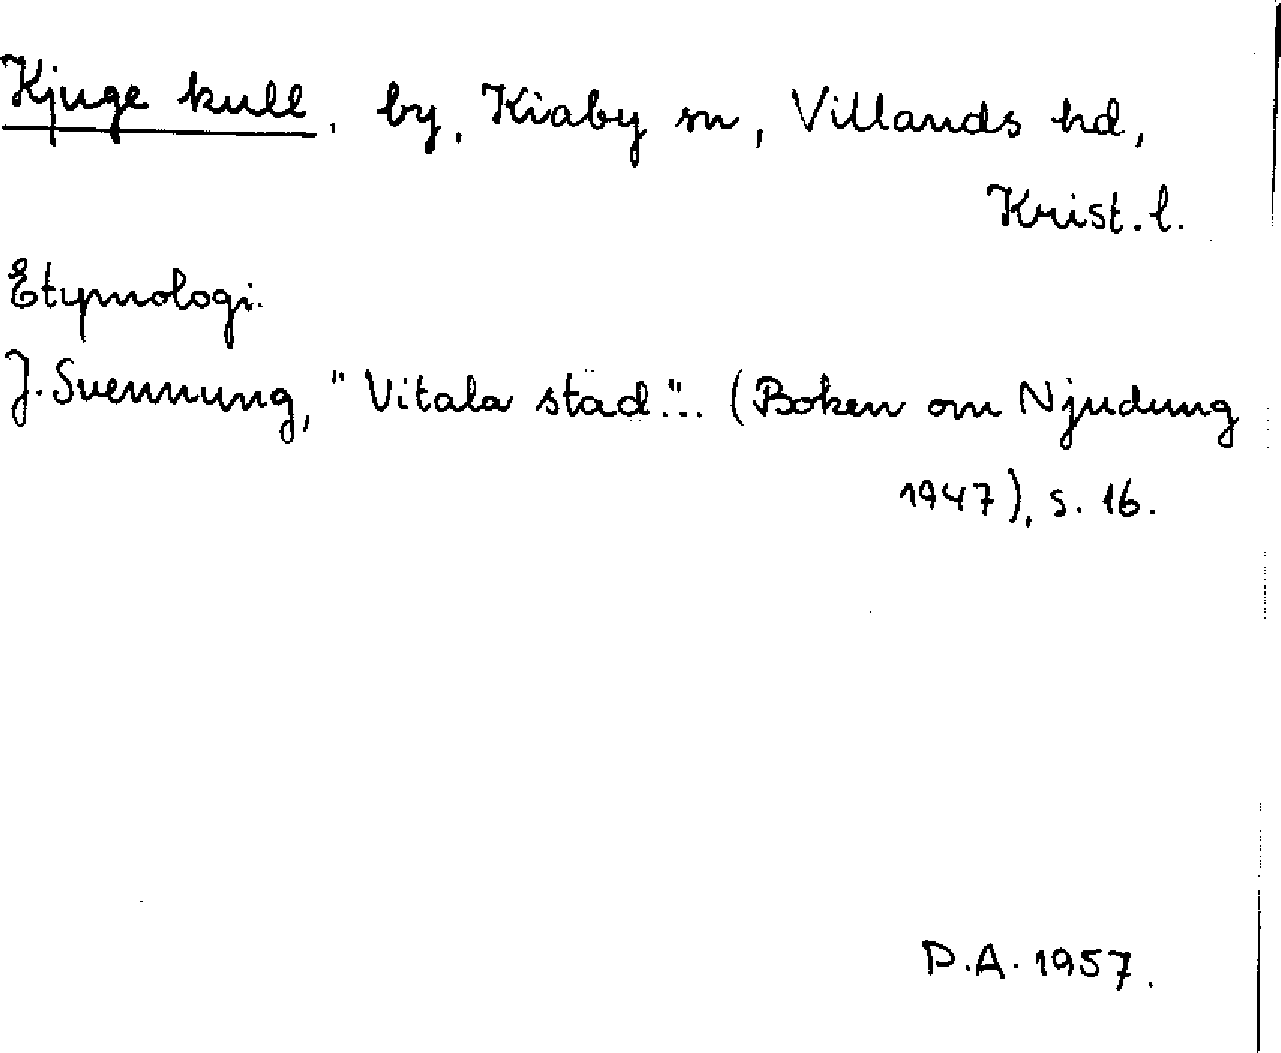 Kjuge kull, by, Kiaby sn, Villands hd,
Krist. l.
Etymologi.
J. Svennung, "Vitala städ"... (Boken om Njudung
1947), s. 16.
P.A. 1957.